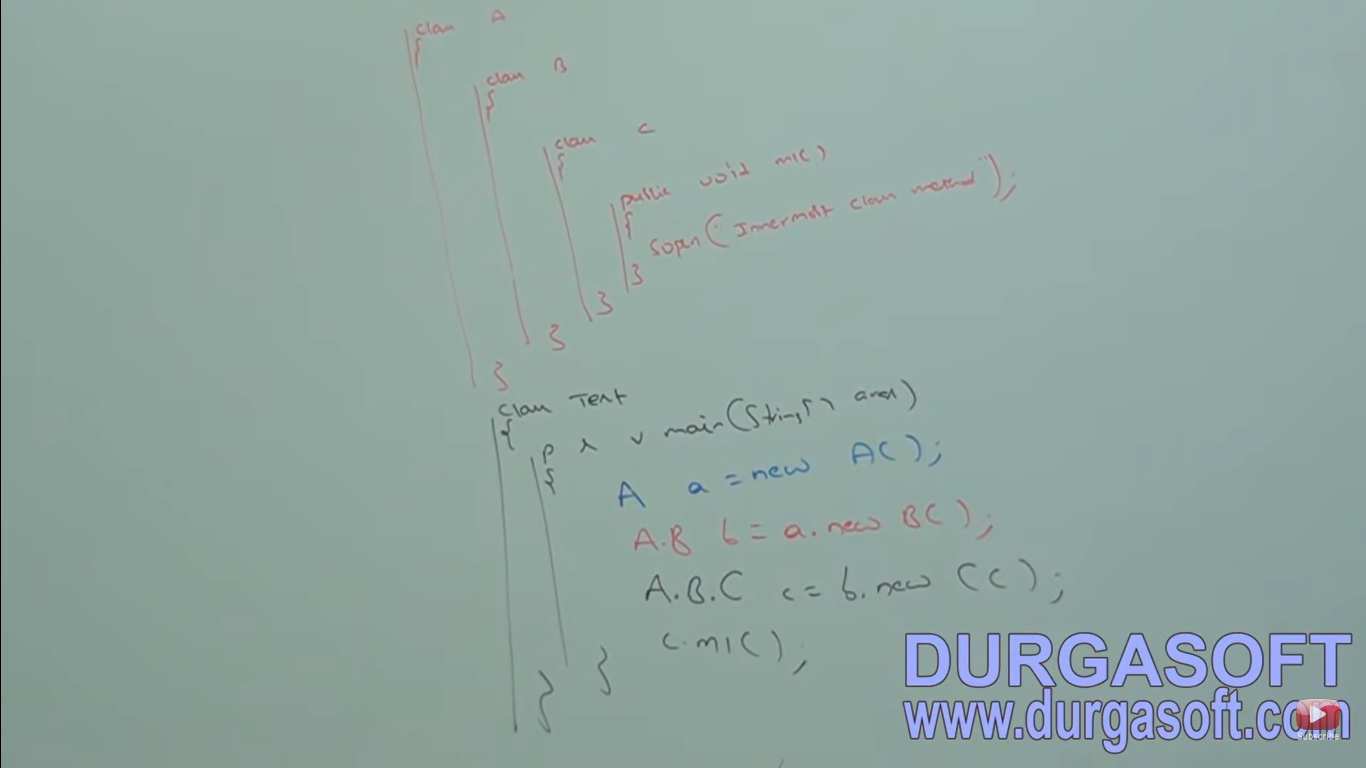 class A
{
class B
{
class C
{
public void m1()
{
Sopln("Innermost class method");
}
}
}
}
class Test
{
p s v main(String[] args)
{
A a = new A();
A.B b = a.new B();
A.B.C c = b.new C();
c.m1();
}
}
DURGASOFT
www.durgasoft.com
Subscribe